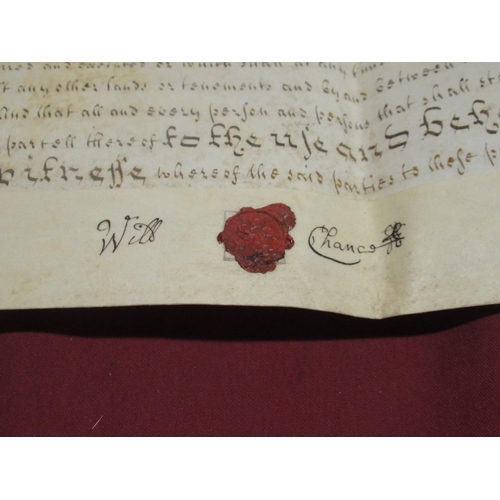 and executed or
any other lands or tenements and by and between
And that all and every person and persons that shall
partell thereof to the use and beho
witnesse whereof the said parties to these p
Will Chance